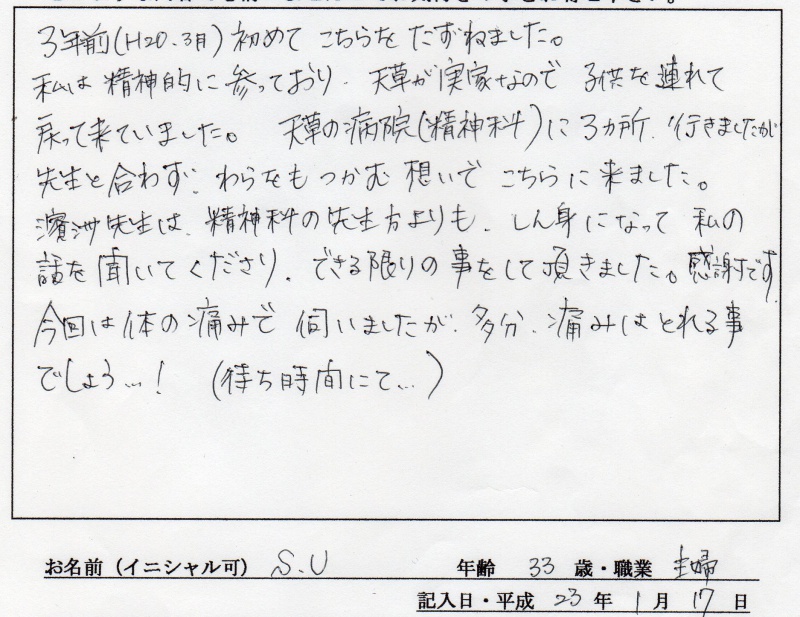 3年前(H20.3月)初めて こちらを たずねました。
私は 精神的に 参っており、天草が実家なので 子供を連れて
戻って来ていました。 天草の病院(精神科)に3カ所、行きましたが
先生と合わず、わらをもつかむ想いで こちらに来ました。
濱洲先生は、精神科の先生方よりも、しん身になって 私の
話を聞いてくださり、できる限りの事をして頂きました。感謝です。
今回は体の痛みで 伺いましたが、多分、痛みはとれる事
でしょう…! (待ち時間にて…)
お名前(イニシャル可) S.U 年齢 33 歳・職業 主婦
記入日・平成 23 年 1 月 17 日